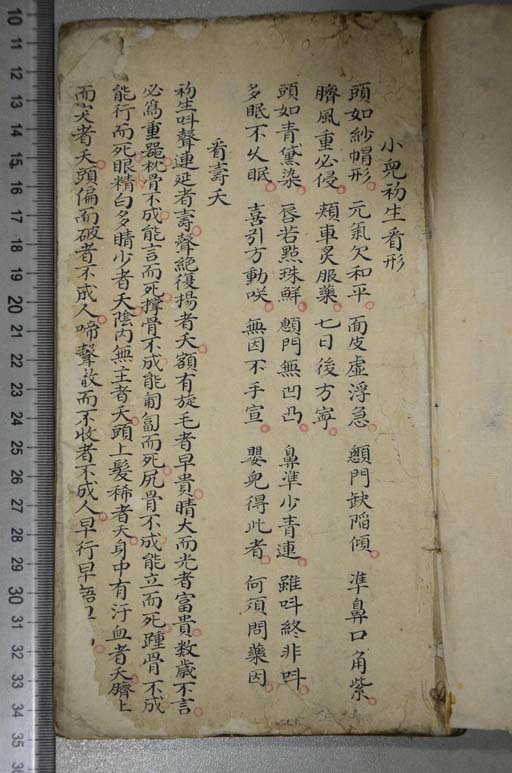 小兒初生看形
頭如紗帽形 元氣欠和平 面皮虛浮急 顖門缺陷傾 準鼻口角紫
臍風重必侵 頰車炙服藥 七日後方寧
頭如青黛染 唇若點珠鮮 顖門無凹凸 鼻準少青連 雖呌終非呌
多眠不久眠 喜引方動咲 無因不手宣 嬰兒得此者 何須問藥因
看壽夭
初生呌聲連延者壽聲絕復揚者夭額有旋毛者早貴睛大而光者富貴数歲不言
必為重器枕骨不成能言而死撑骨不成能匍匐而死尻骨不成能立而死踵骨不成
能行而死眼精白多睛少者夭陰內無主者夭頭上髮稀者夭身中有汗血者夭臍上
而尖者夭頭偏而破者不成人啼聲散而不收者不成人早行早語